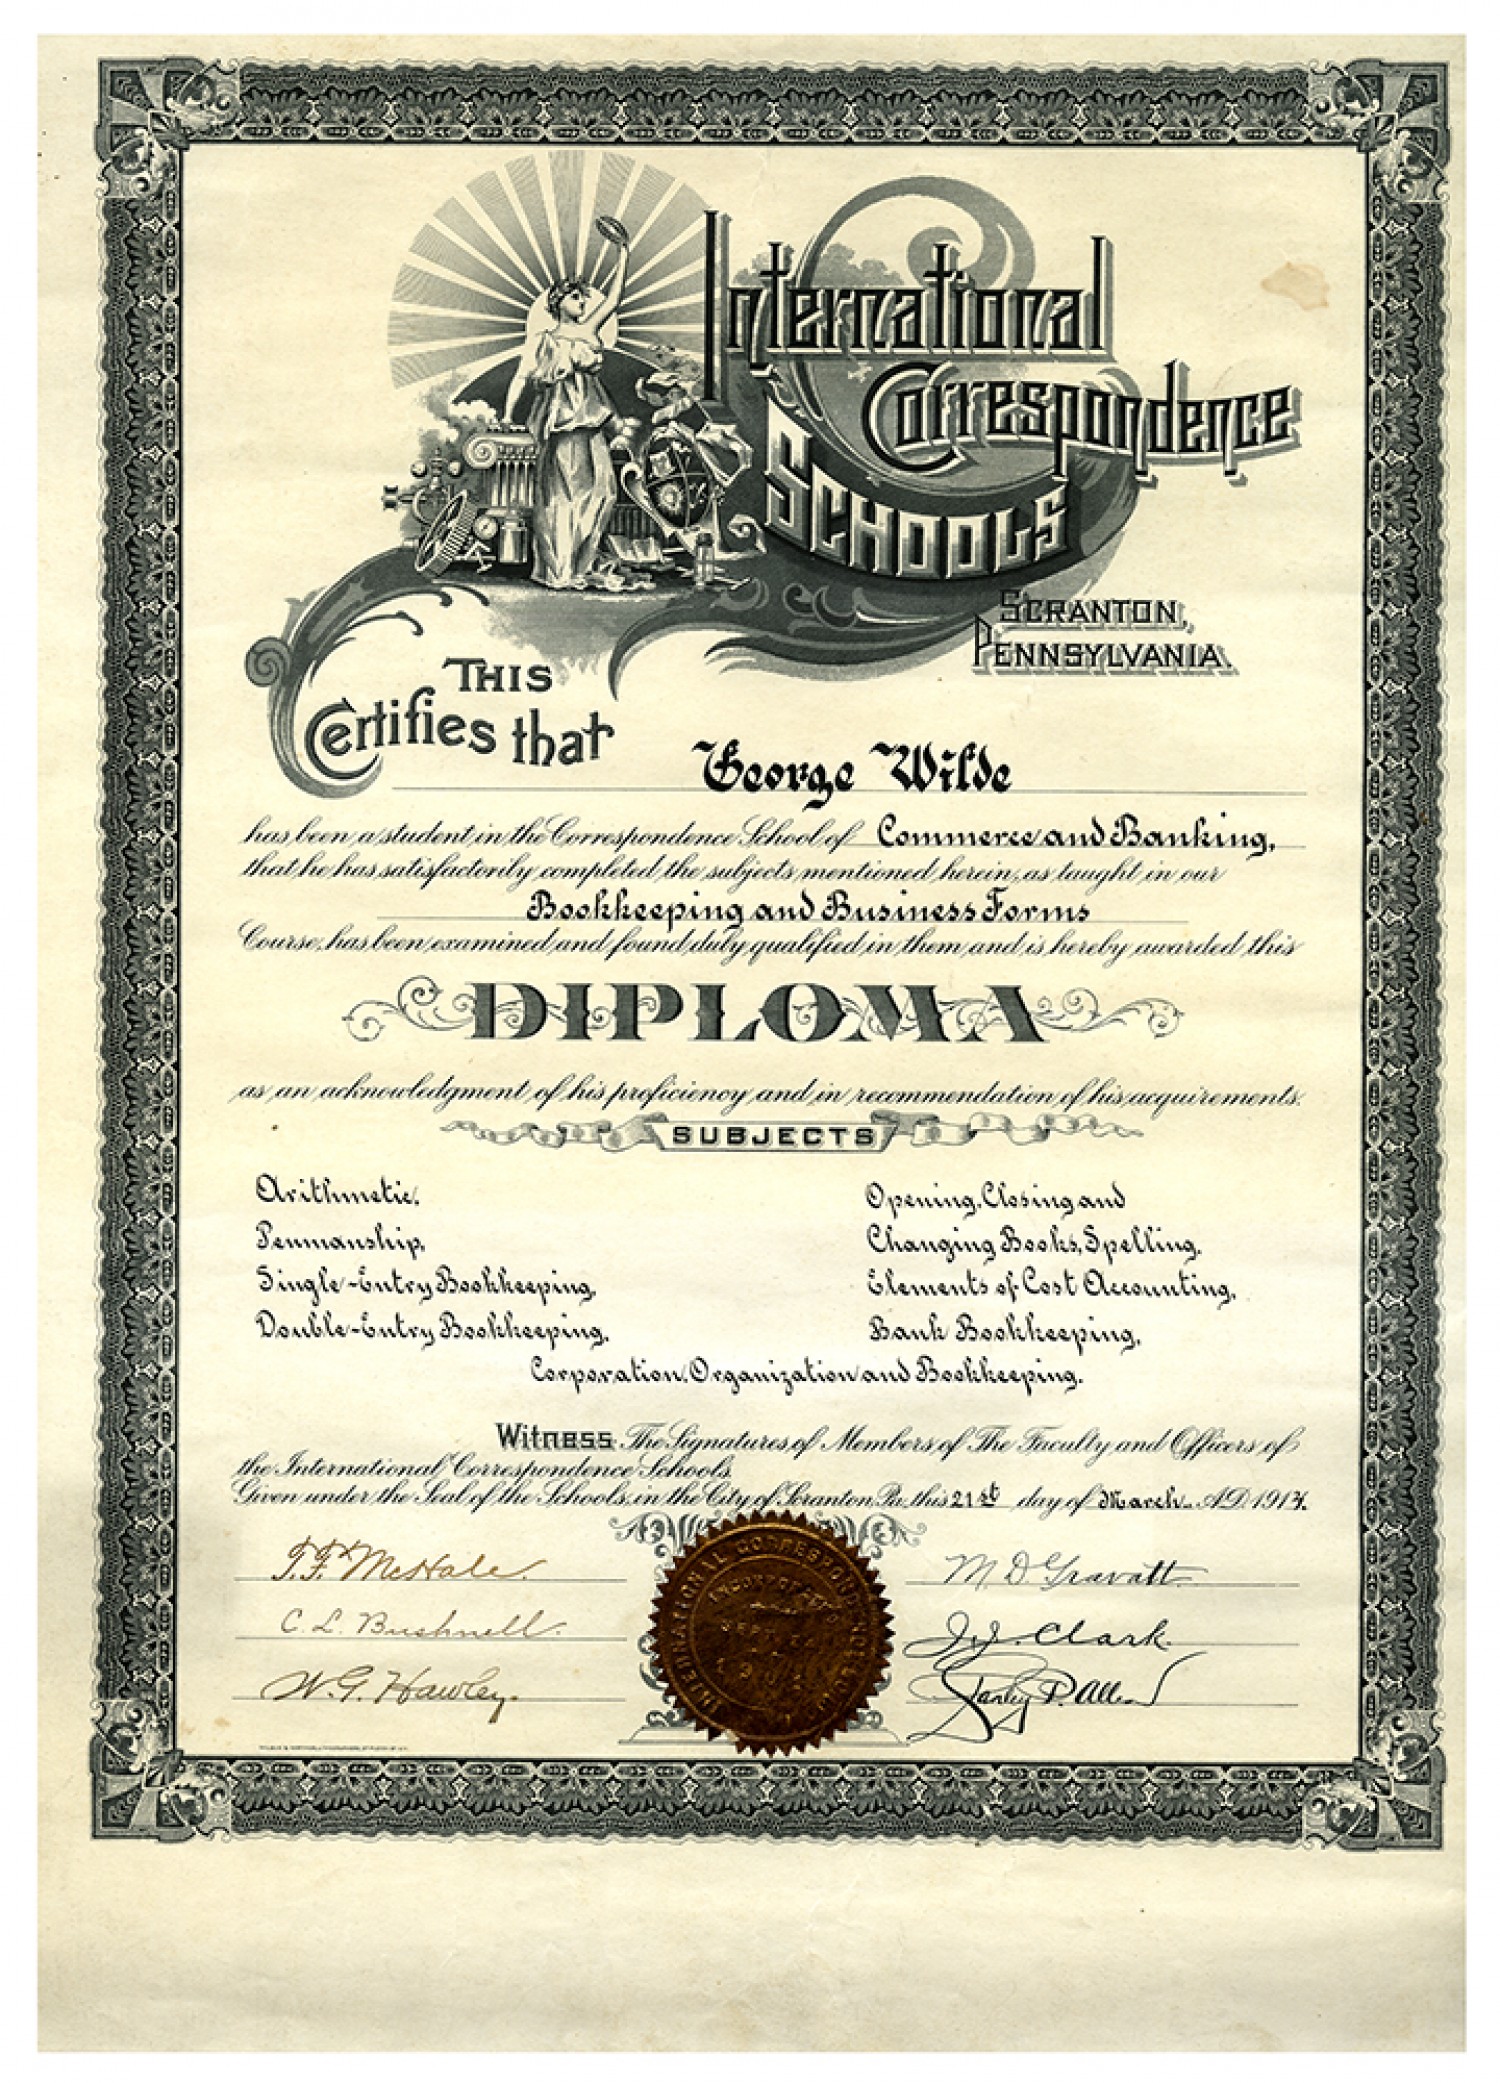 International
Correspondence
Schools
Scranton,
Pennsylvania.
This
Certifies that
George Wilde
has been a student in the Correspondence School of Commerce and Banking,
that he has satisfactorily completed the subjects mentioned herein, as taught in our
Bookkeeping and Business Forms
Course, has been examined and found duly qualified in them and is hereby awarded this
DIPLOMA
as an acknowledgment of his proficiency and in recommendation of his acquirements.
SUBJECTS
Arithmetic,
Penmanship,
Single-Entry Bookkeeping,
Double-Entry Bookkeeping,
Opening, Closing and
Changing Books, Spelling,
Elements of Cost Accounting,
Bank Bookkeeping,
Corporation, Organization and Bookkeeping.
Witness The Signatures of Members of The Faculty and Officers of
the International Correspondence Schools.
Given under the Seal of the Schools, in the City of Scranton, Pa. this 21st day of March A.D. 1914.
T. F. McHale.
C. L. Bushnell.
W. G. Hawley.
INTERNATIONAL CORRESPONDENCE SCHOOLS
INCORPORATED
SEPT. 24
M. D. Gravatt
J. J. Clark.
Stanley P. Allen